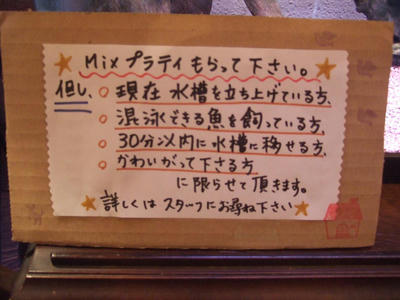 Mixプラティもらって下さい。
但し、○現在水槽を立ち上げている方、
○混泳できる魚を飼っている方、
○30分以内に水槽に移せる方、
○かわいがって下さる方
に限らせて頂きます。
詳しくはスタッフにお尋ね下さい